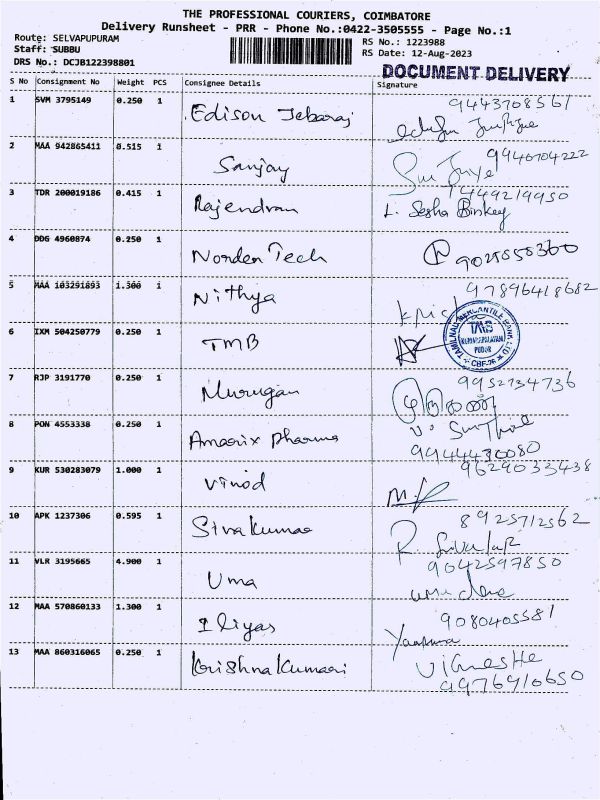 THE PROFESSIONAL COURIERS, COIMBATORE
Delivery Runsheet - PRR - Phone No.:0422-3505555 - Page No.:1
Route: SELVAPUPURAM RS No.: 1223988
Staff: SUBBU RS Date: 12-Aug-2023
DRS No.: DCJB122398801 DOCUMENT DELIVERY
S No Consignment No Weight PCS Consignee Details Signature
1 SVM 3795149 0.250 1 Edison Jebaraj 9443708561
2 MAA 942865411 0.515 1 Sanjay 9940704222
3 TDR 200019186 0.415 1 Rajendran 7449219950
L. Sesha
4 DDG 4960874 0.250 1 Norden Tech 9025858360
5 MAA 103291893 1.300 1 Nithya 97896418682
6 IXM 504250779 0.250 1 TMB
TAMILNAD MERCANTILE BANK LTD
TMB
7 RJP 3191770 0.250 1 Murugan 9952734736
8 PON 4553338 0.250 1 Amarix Pharma
9944430080
9 KUR 530283079 1.000 1 Vinod 9629033438
10 APK 1237306 0.595 1 Sivakumar 8925712562
11 VLR 3195665 4.900 1 Uma 9042597850
12 MAA 570860133 1.300 1 Iliyas 9080405581
13 MAA 860316065 0.250 1 Krishnakumari
9976910650